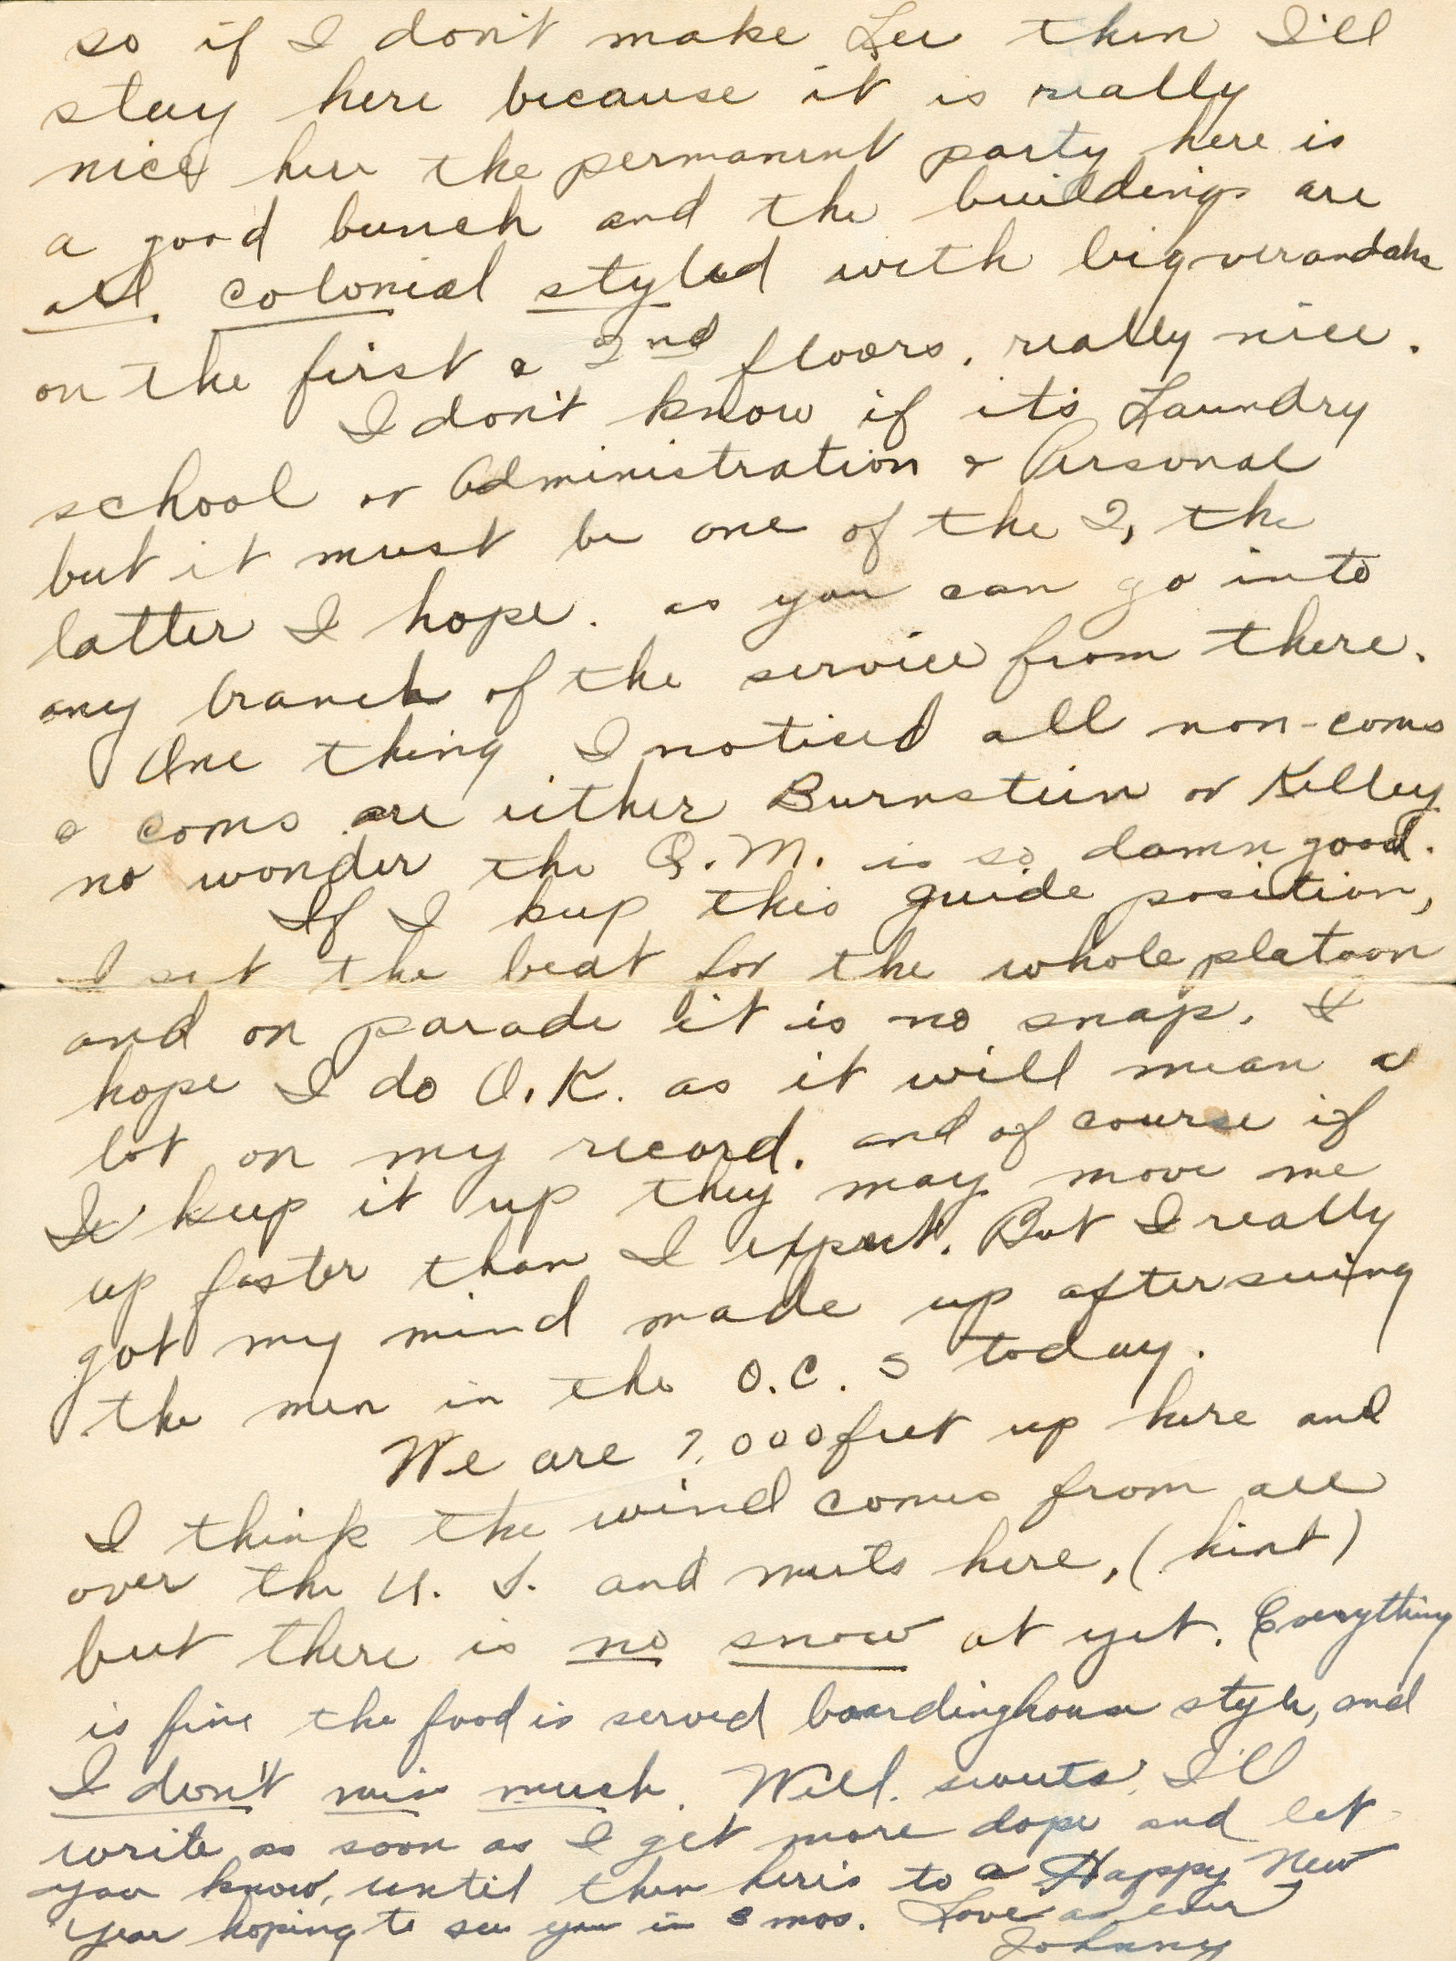 so if I don't make Lee then I'll
stay here because it is really
nice here the permanent party here is
a good bunch and the buildings are
all. colonial styled with big verandahs
on the first & 2nd floors, really nice.
I don't know if it's Laundry
school or Administration & Personal
but it must be one of the 2, the
latter I hope. as you can go into
any branch of the service from there.
One thing I noticed all non-coms
& coms are either Burnstein or Kelley
no wonder the Q.M. is so damn good.
If I keep this guide position,
I set the beat for the whole platoon
and on parade it is no snap. I
hope I do O.K. as it will mean a
lot on my record. and of course if
I keep it up they may move me
up faster than I expect. But I really
got my mind made up after seeing
the men in the O.C.S today.
We are 7,000 feet up here and
I think the wind comes from all
over the U.S. and meets here, (hint)
but there is no snow at yet. Everything
is fine the food is served boardinghouse style, and
I don't miss much. Well sweets, I'll
write as soon as I get more dope and let
you know, until then here's to a Happy New
Year hoping to see you in 3 mos. Love as ever
Johnny